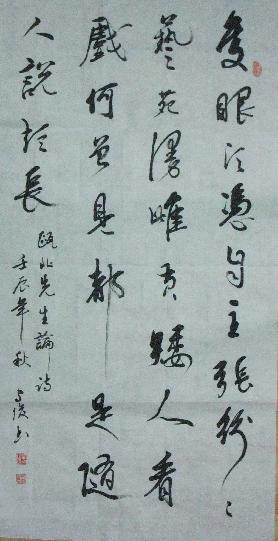 隻眼須憑自主張紛々
藝苑漫雌黄矮人看
戲何曾見都是隨
人說短長
甌北先生論詩
壬辰年秋